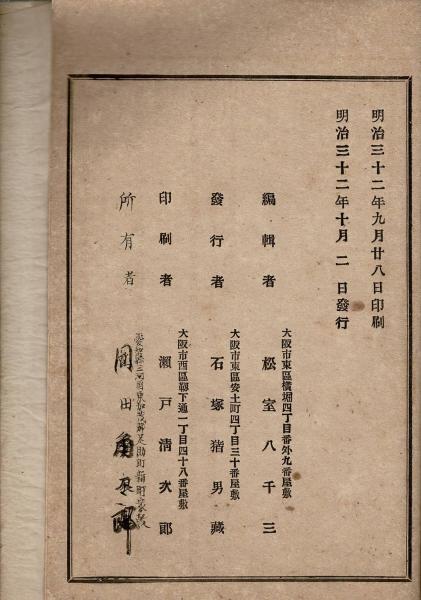 明治三十二年九月廿八日印刷
明治三十二年十月二日發行
編輯者
大阪市東區橫堀四丁目番外九番屋敷
松室八千三
發行者
大阪市東區安土町四丁目三十番屋敷
石塚猪男藏
印刷者
大阪市西區下通一丁目四十八番屋敷
瀬戸淸次郎
所有者
三河國東加茂郡足助町
岡田